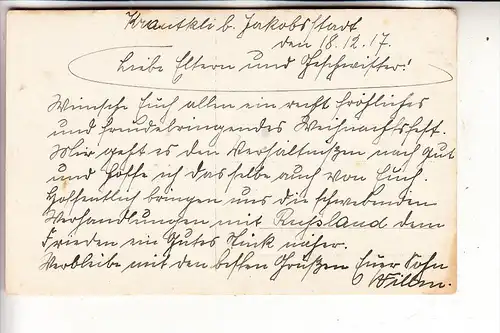 Krautkli b. Jakobsstadt
den 18.12.17.
Liebe Eltern und Geschwister!
Wünsche Euch allen ein recht fröhliches
und freudebringendes Weihnachtsfest.
Mir geht es den Verhältnißen nach Gut
und hoffe ich dasselbe auch von Euch.
Hoffentlich bringen uns die schwebenden
Verhandlungen mit Russland dem
Frieden ein Gutes Stück näher.
Verbleibe mit den besten Grüßen Euer Sohn
Willm.